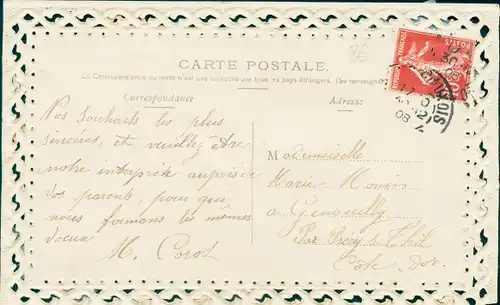 8E
CARTE POSTALE.
La Correspondance au recto n'est pas acceptée par tous les pays étrangers. (Se renseigner
Correspondance
Adresse
Nos souhaits les plus
sincères, et veuillez être
notre interprète auprès de
vos parents, pour qui
nous formons les mêmes
voeux
M. Corot
Mademoiselle
Marie
à Genouilly
Par Précy s. Thil
Côte d'or
POSTES
08